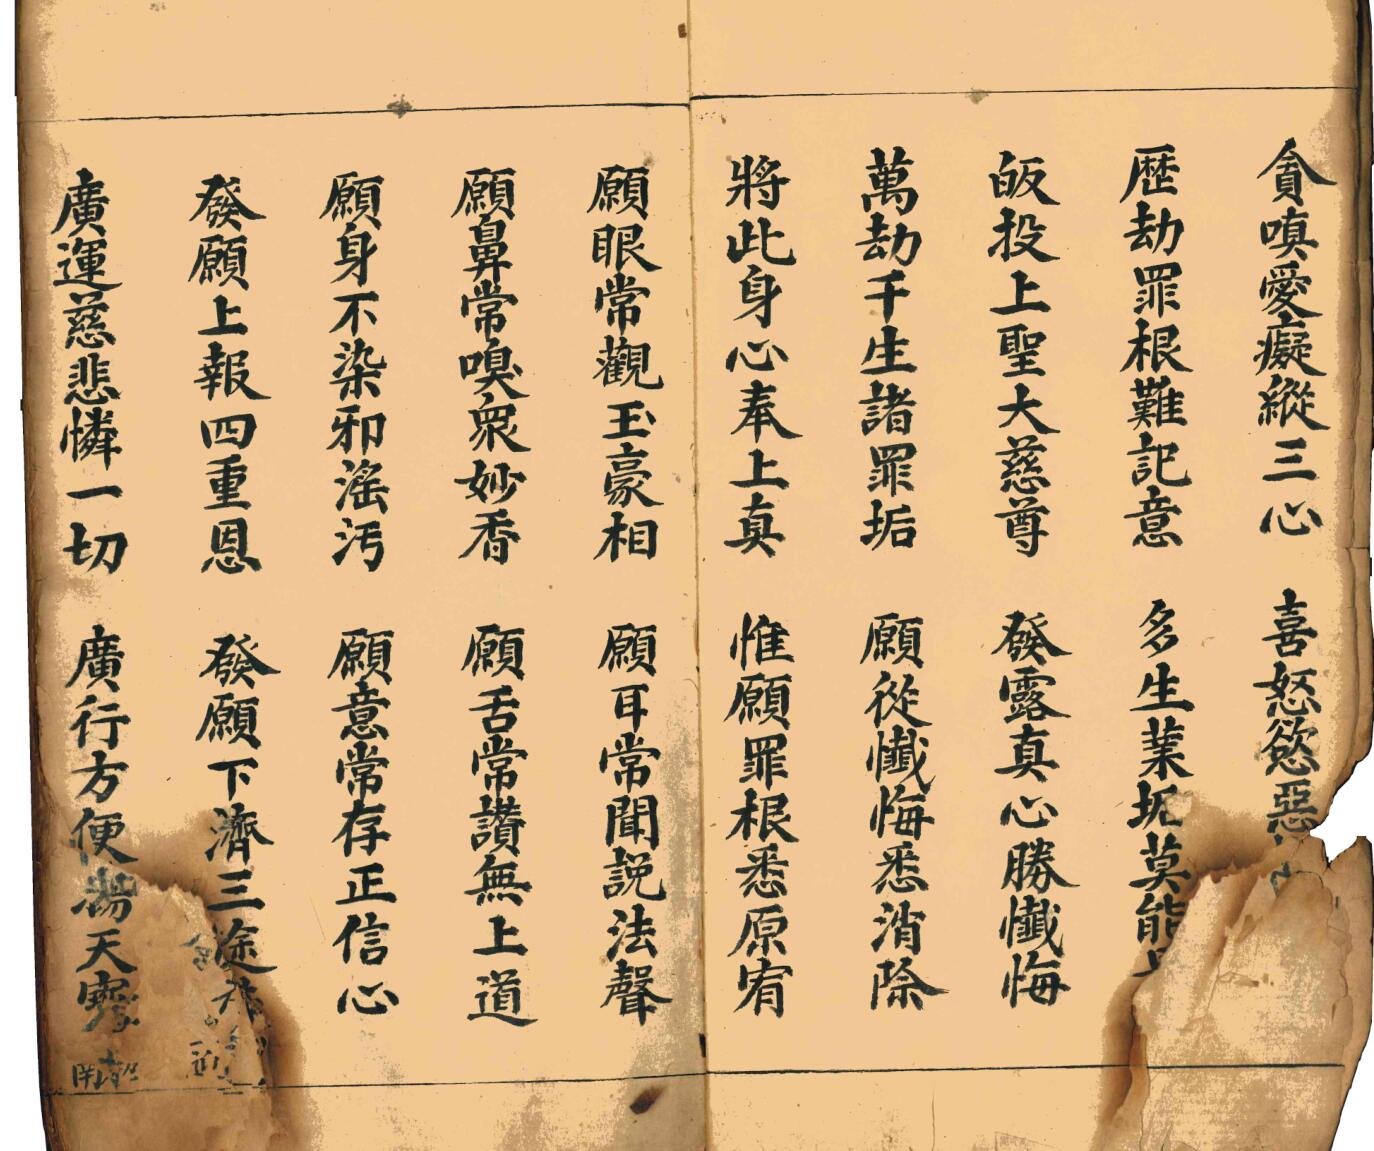 貪嗔愛癡縱三心 喜怒慾惡
歷劫罪根難記意 多生業垢莫能
皈投上聖大慈尊 發露真心勝懺悔
萬劫千生諸罪垢 願從懺悔悉消除
將此身心奉上真 惟願罪根悉原宥
願眼常觀玉豪相 願耳常聞説法聲
願鼻常嗅衆妙香 願舌常讚無上道
願身不染邪滛汚 願意常存正信心
發願上報四重恩 發願下濟三途
廣運慈悲憐一切 廣行方便 天寳